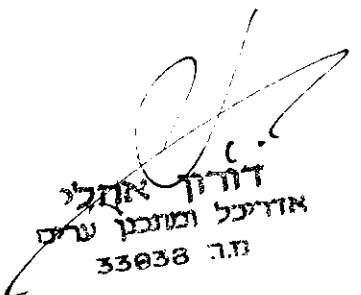 דורון אהלי
אדריכל ומתכנן ערים
מ.ר. 33838